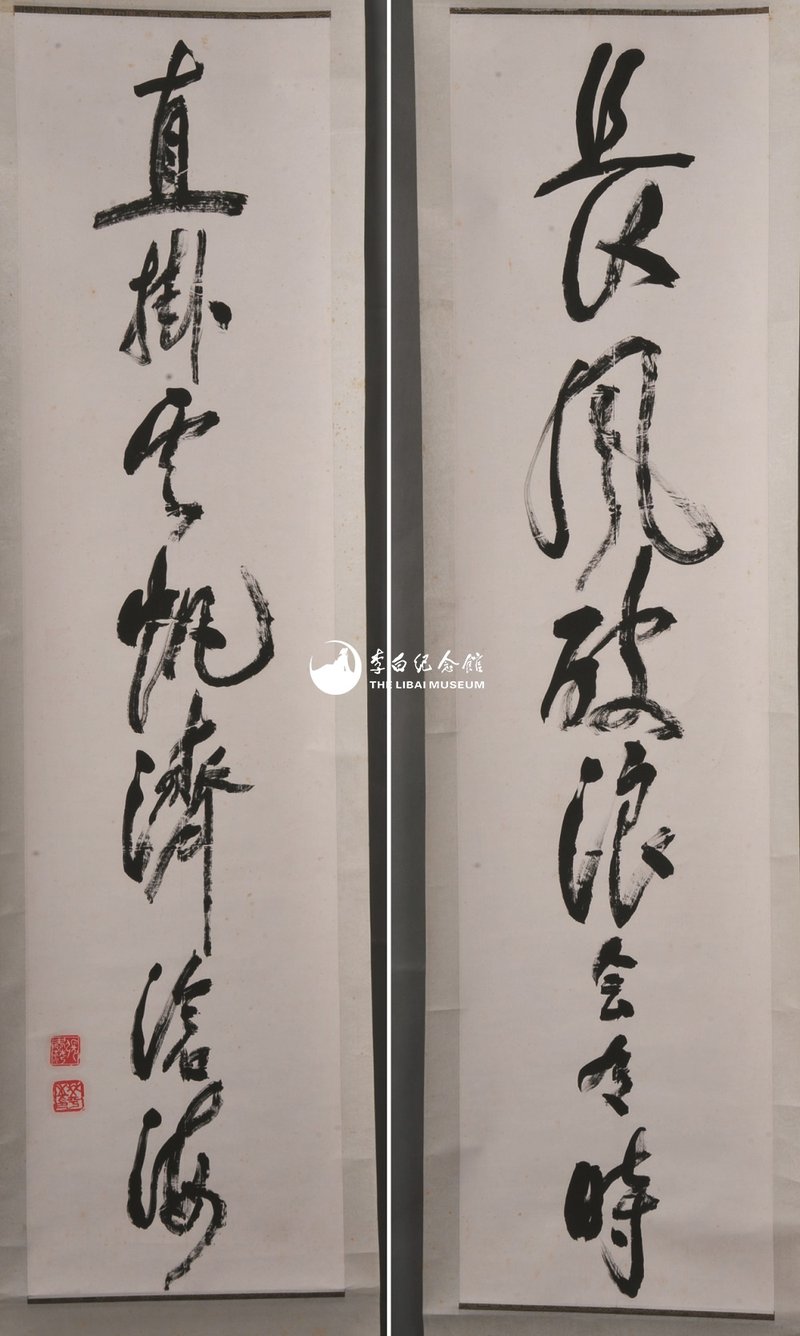 長風破浪会有時
直掛雲帆濟滄海
李白纪念馆
THE LIBAI MUSEUM